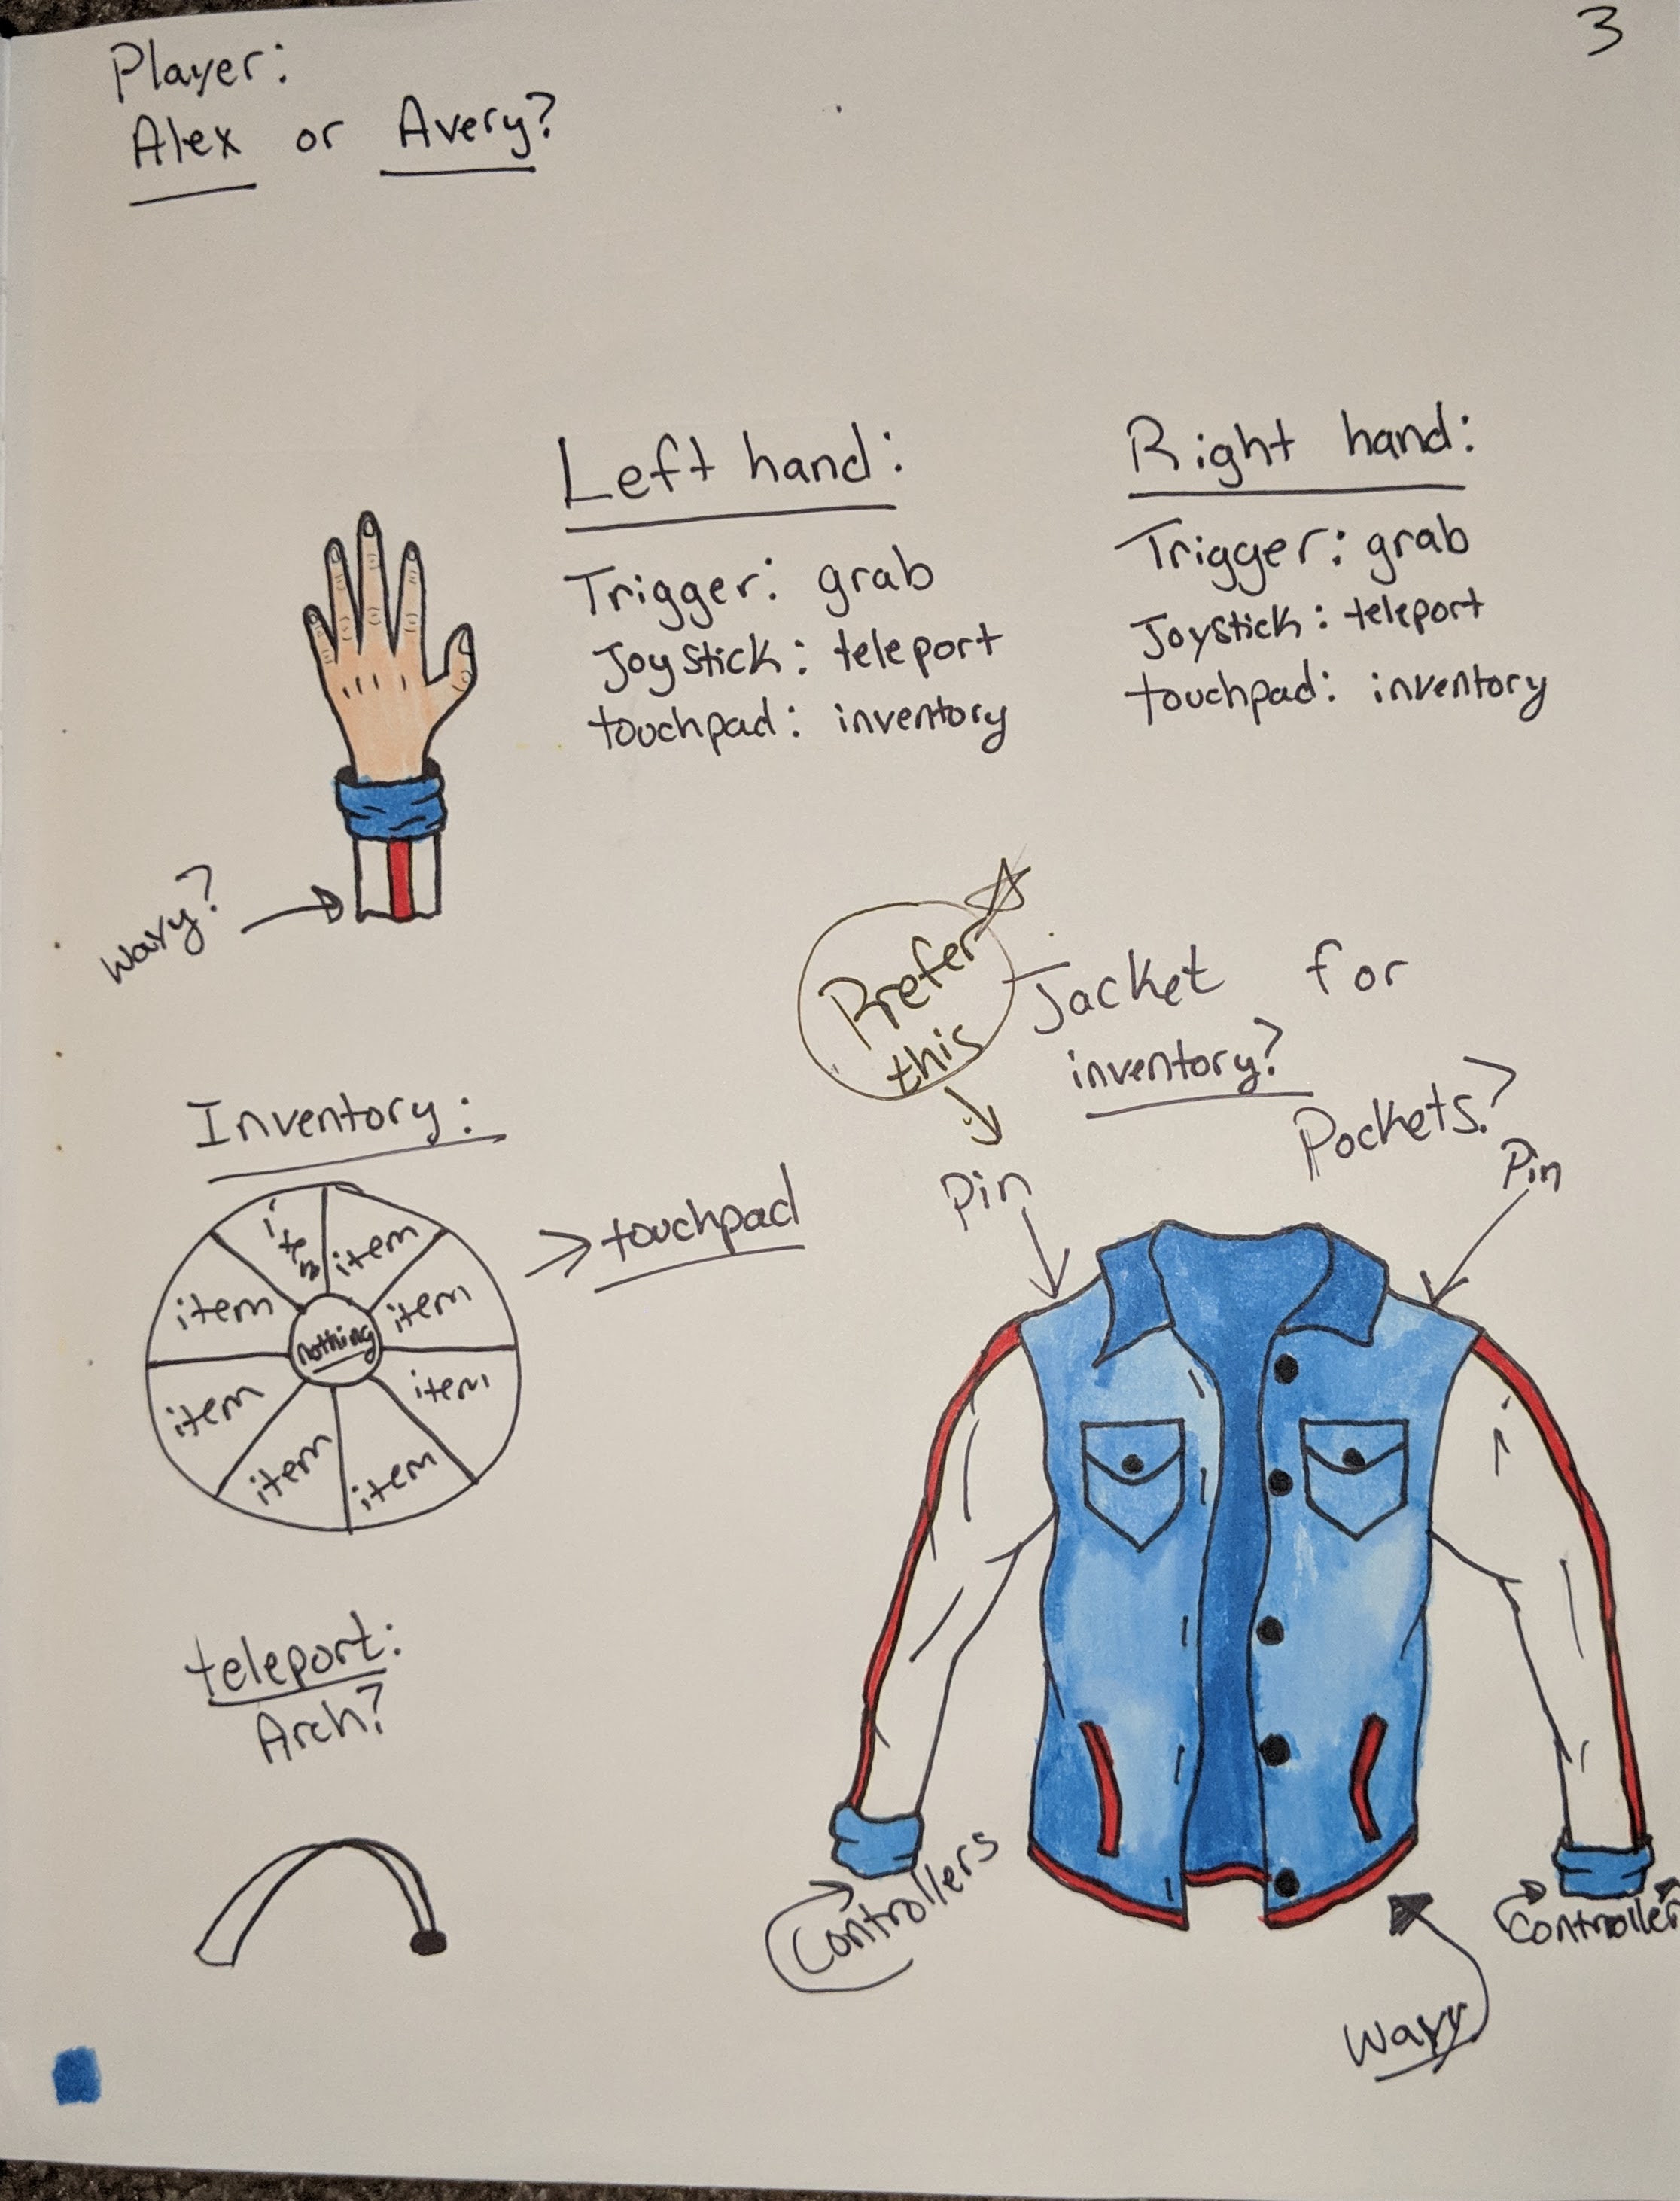 3
Player:
Alex or Avery?
Left hand:
Trigger: grab
Joystick: teleport
touchpad: inventory
Right hand:
Trigger: grab
Joystick: teleport
touchpad: inventory
wavy?
Prefer
this
Jacket for
inventory?
Pockets?
Pin
Pin
Inventory:
item
item
item
item
item
item
item
item
nothing
touchpad
teleport:
Arch?
Controllers
Controller
Wavy